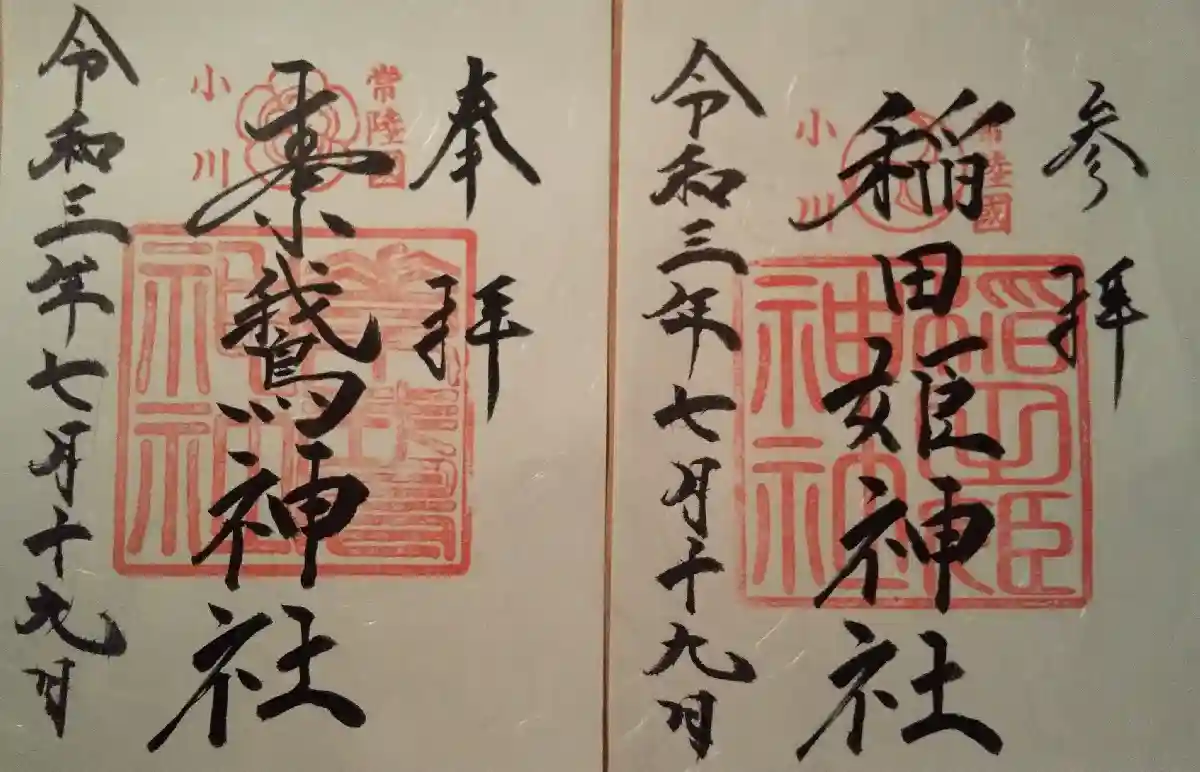 参拝
常陸國
小川
稲田姫神社
稲田姫
神社
令和三年七月十九日
奉拝
常陸國
小川
素鵞神社
令和三年七月十九日